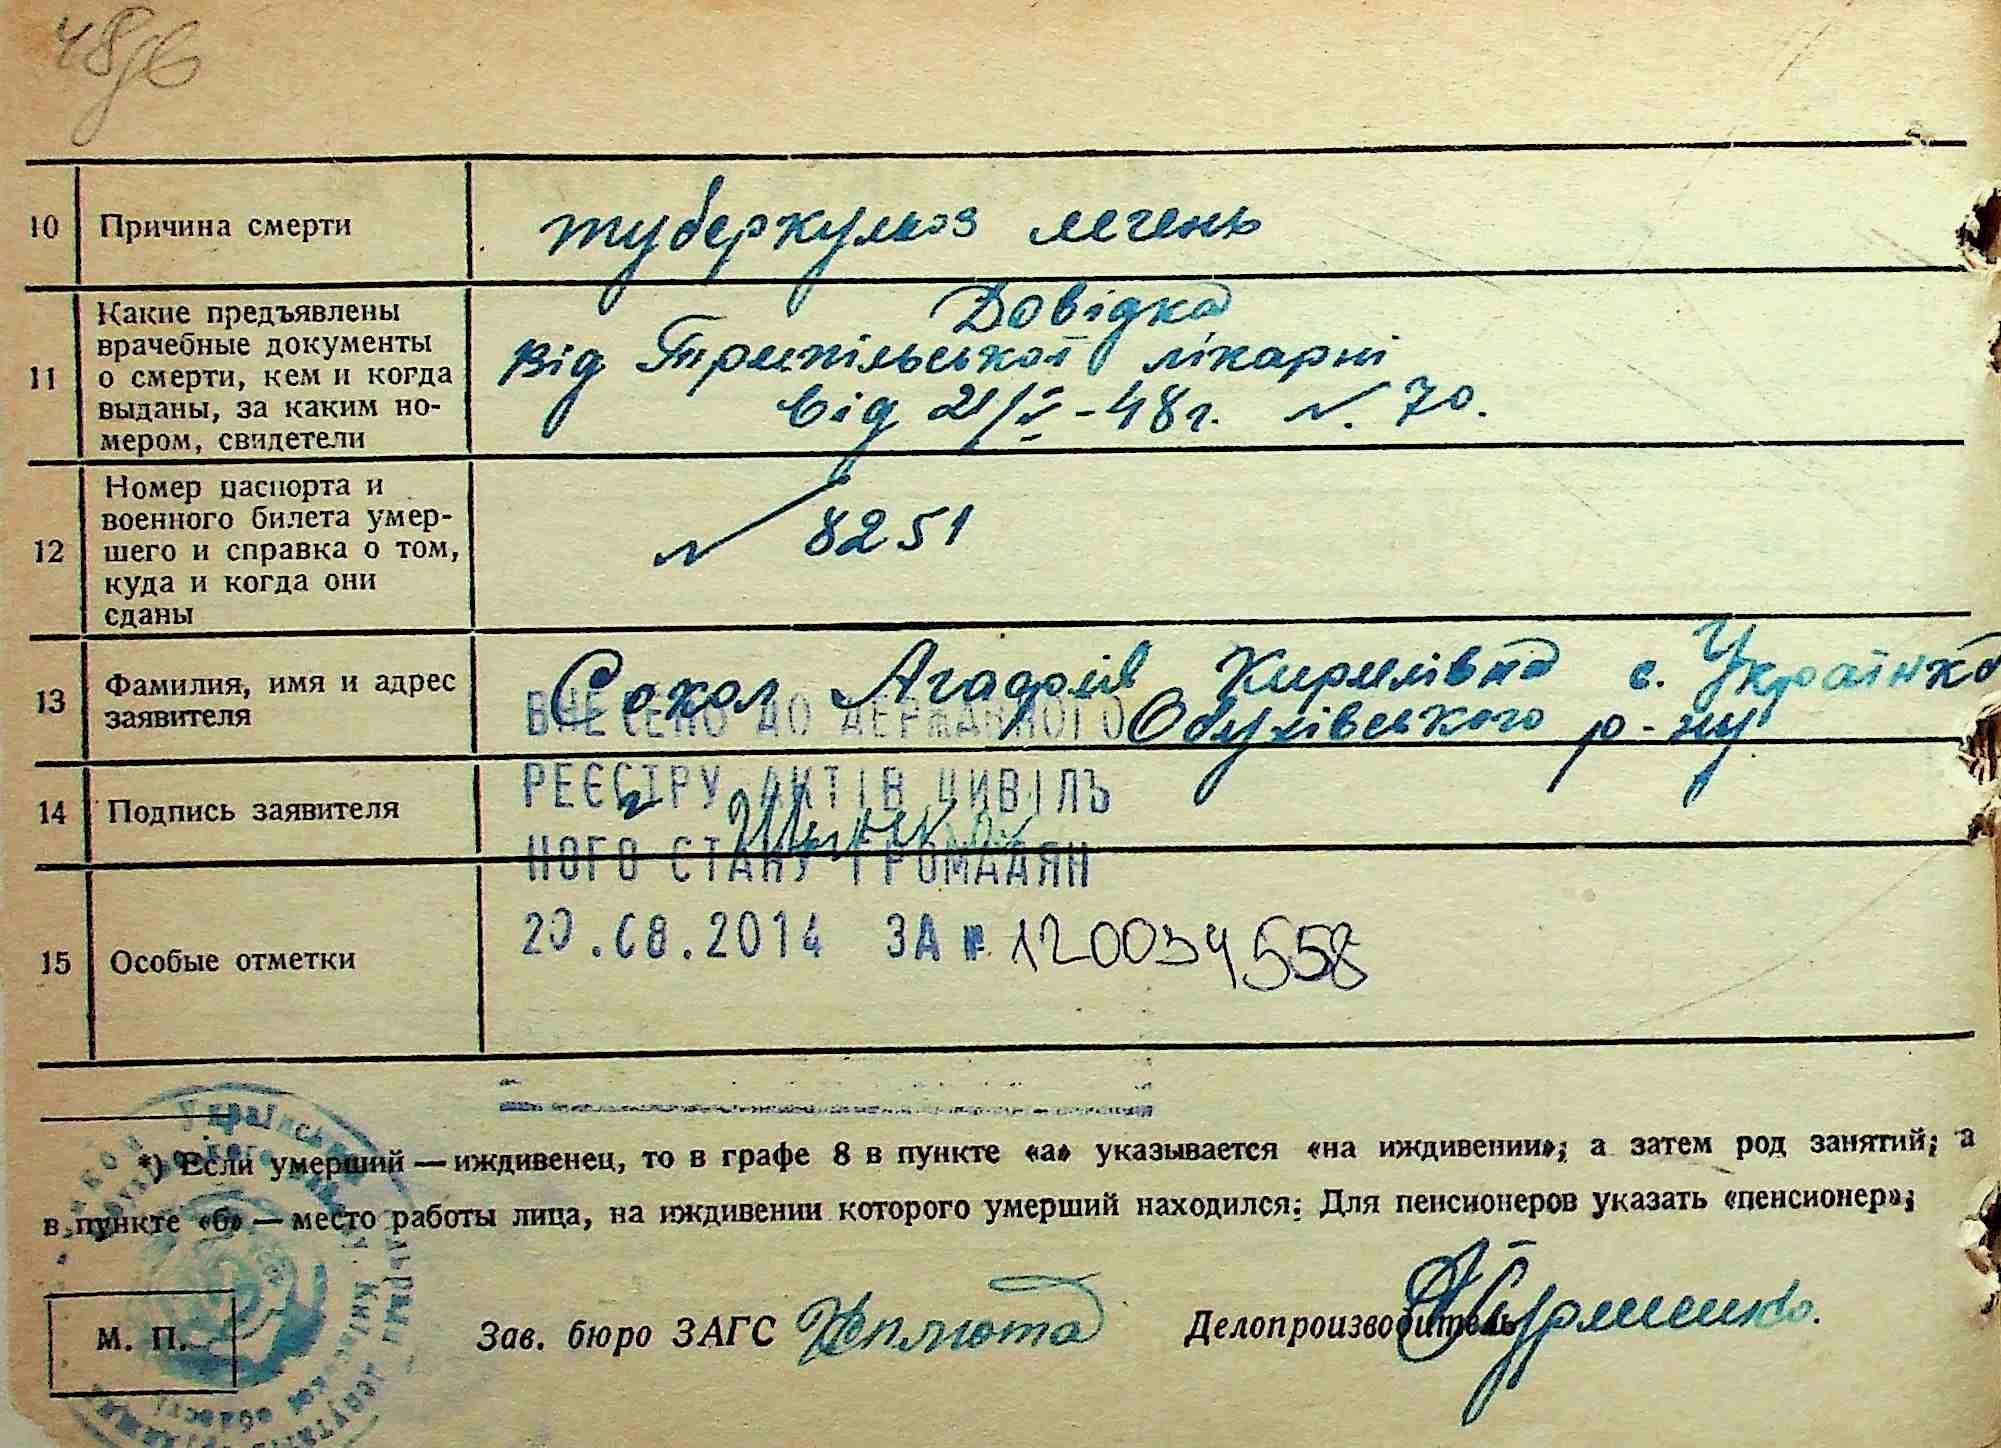 48
10 Причина смерти туберкульоз легень
11 Какие предъявлены
врачебные документы
о смерти, кем и когда
выданы, за каким но-
мером, свидетели
Довідка
від Трипільської лікарні
від 21/V-48г. №. 70.
12 Номер паспорта и
военного билета умер-
шего и справка о том,
куда и когда они
сданы
№ 8251
13 Фамилия, имя и адрес
заявителя
Сокол Агафія Кирилівна с. Українка
Обухівського р-ну
ВНЕСЕНО ДО ДЕРЖАВНОГО
14 Подпись заявителя
РЕЄСТРУ АКТІВ ЦИВІЛЬ
НОГО СТАНУ ГРОМАДЯН
15 Особые отметки
20.08.2014 ЗА № 120034558
*) Если умерший — иждивенец, то в графе 8 в пункте «а» указывается «на иждивении»; а затем род занятий; а
в пункте «б» — место работы лица, на иждивении которого умерший находился: Для пенсионеров указать «пенсионер»;
М. П. Зав. бюро ЗАГС Делопроизводитель